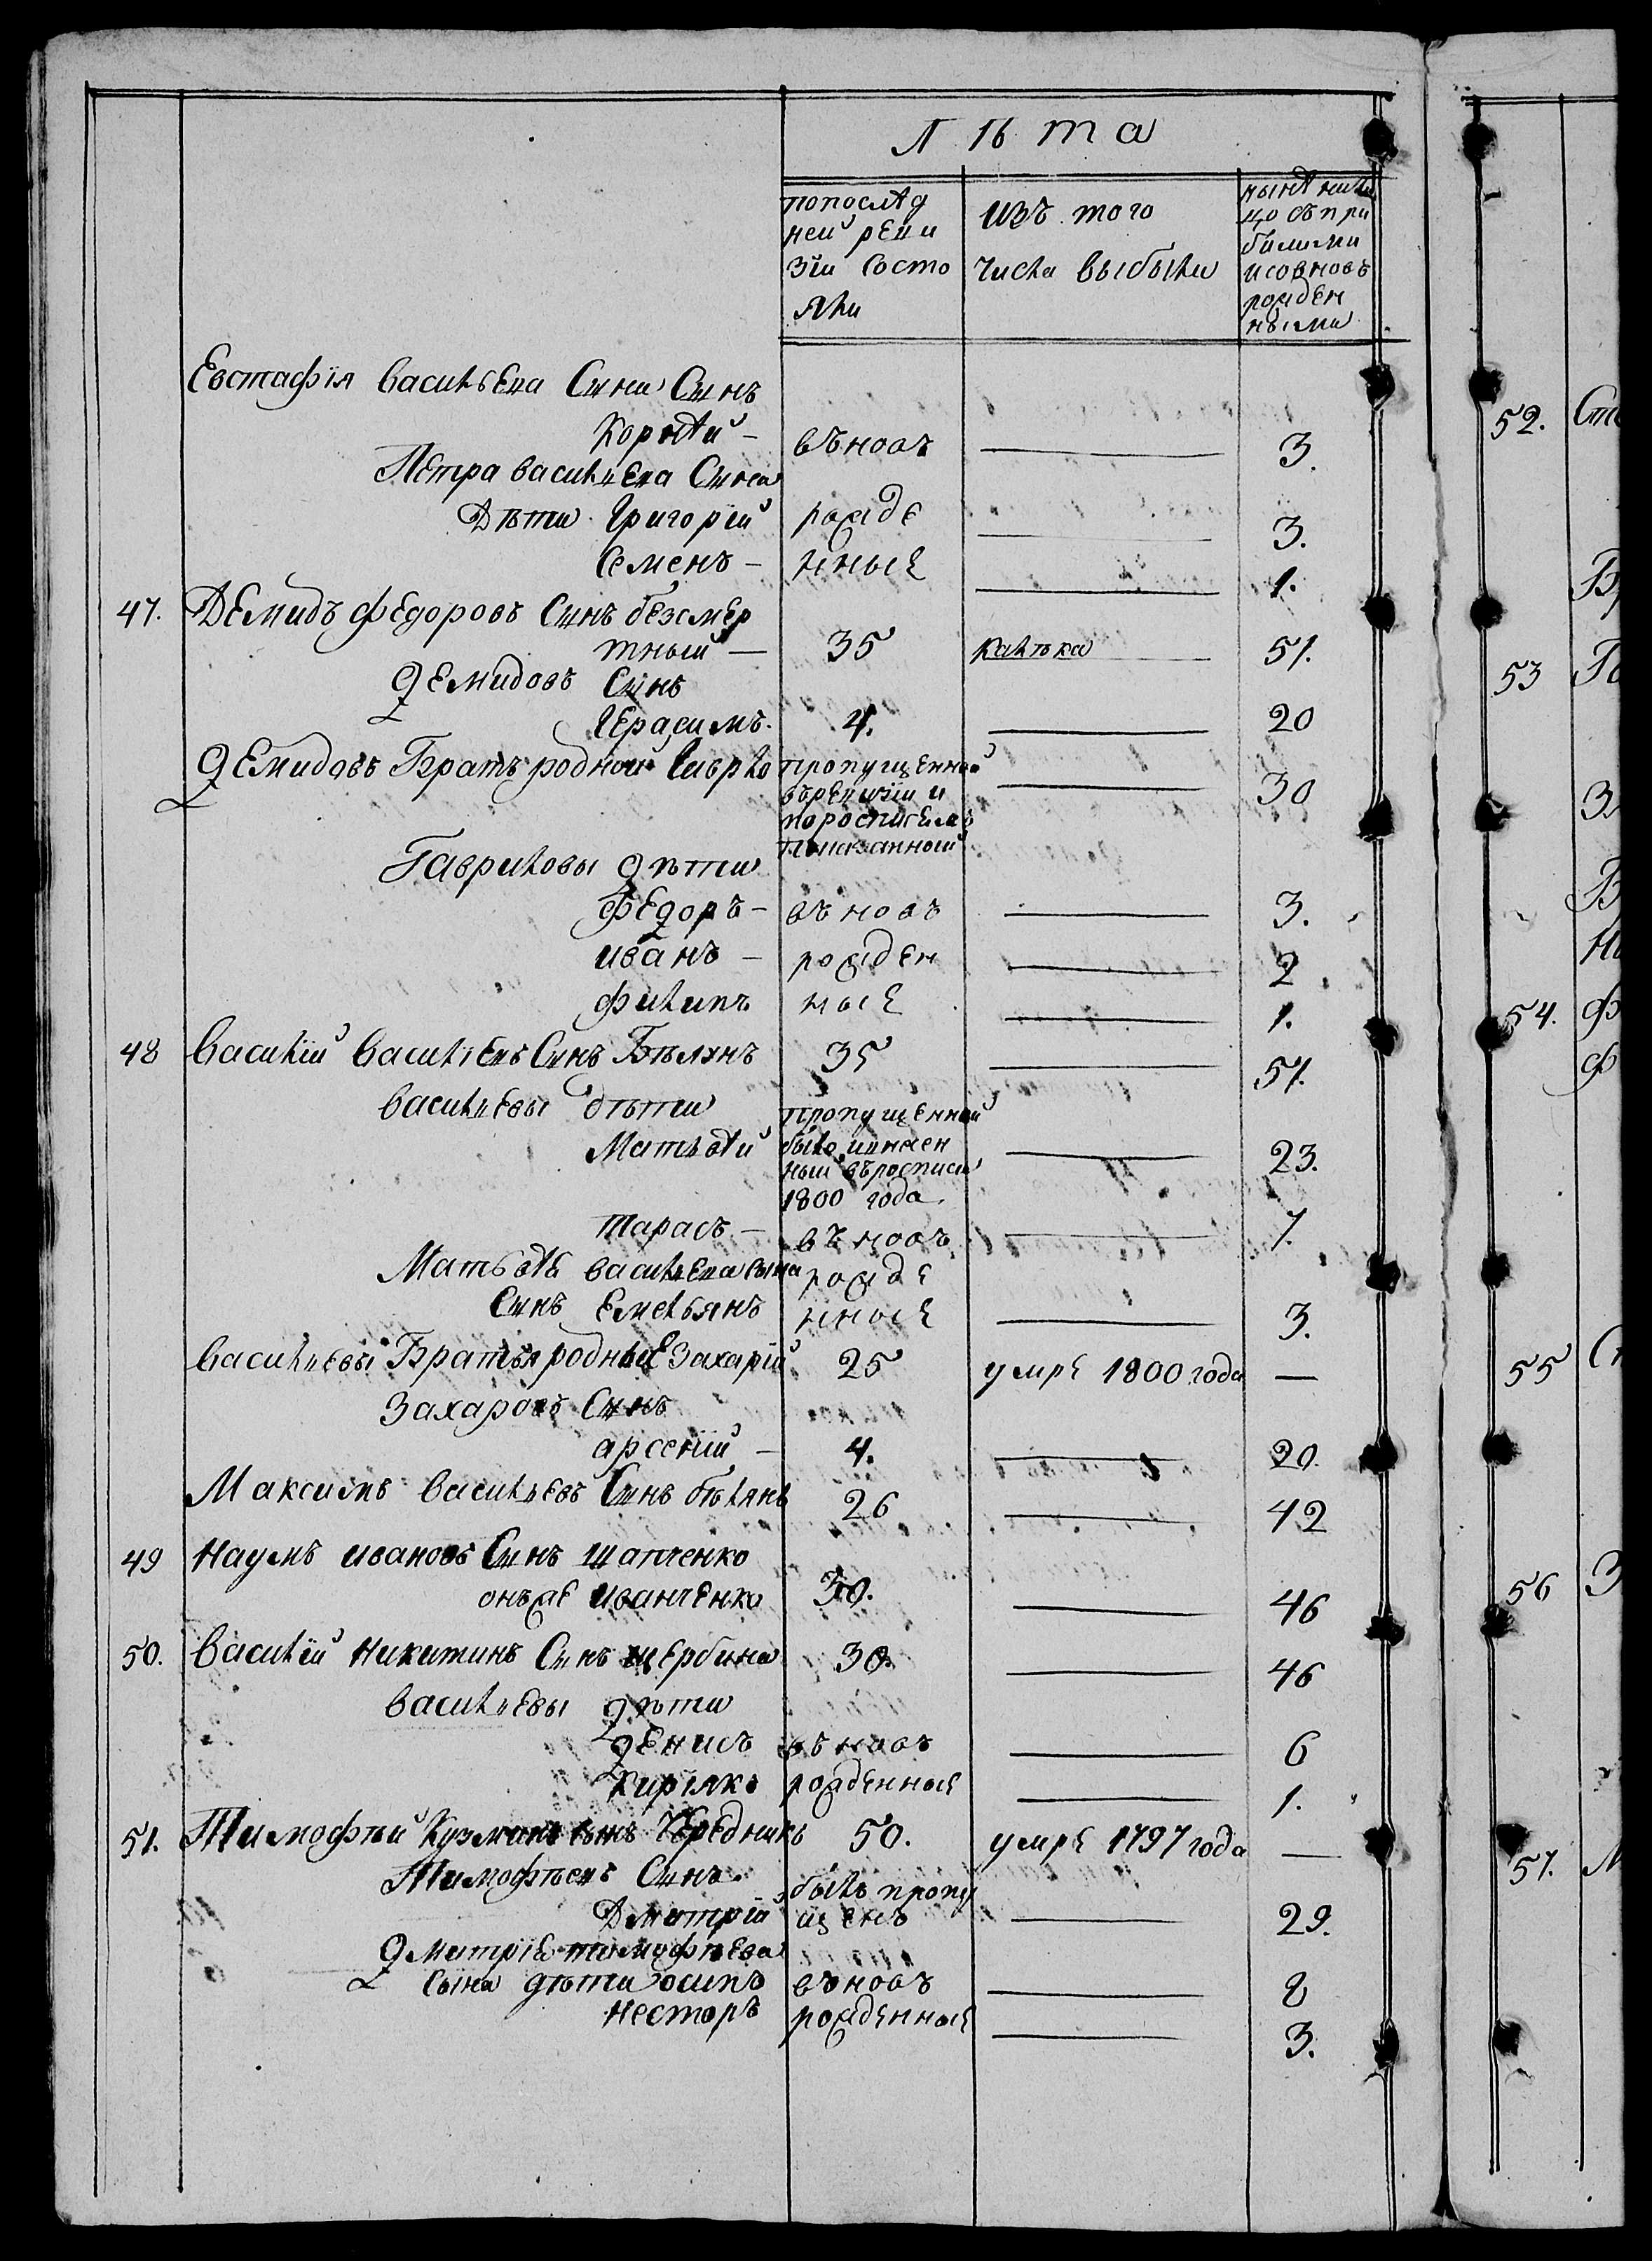 Лѣта
попослѣд
ней реви
зіи Состо
яли
изъ того
числа выбыли
нынѣ нали
цо съ при
былыми
исовновь
рожден
ными
Евстафія васильева Сына Сынъ
Корнѣй — вьновь — 3.
Петра васильева Сына
Дѣти Григорій рожде — 3.
Семенъ — нные — 1.
47. Демидъ федоровъ Сынъ безсмер
тный — 35 калѣка 51.
демидовъ Сынъ
Герасимъ. 4. — 20
демидовъ Братъ родной Гаврыло пропущенной — 30
въревизіи и
поросписямъ
Гавриловы дѣти
федоръ — вьновь — 3.
иванъ — рожден — 2
филипъ ные — 1.
48 Василій Васильевъ Сынъ Бѣлянъ 35 — 51.
васильевы дѣти пропущенной
Матьвѣй было — 23.
въросписи
1800 года.
Тарасъ — вьновь — 7.
Матьвѣя васильева сына рожде
Сынъ Емельянъ нные — 3.
васильевы Братья родные Захарій 25 умре 1800 года —
Захаровъ Сынъ
арсеній — 4. — 20.
Максимъ васильевъ Сынъ бѣлянъ 26 — 42
49 Наумъ ивановъ Сынъ Шапченко
онъже иванченко 30. — 46
50. Василій Никитинъ Сынъ щербина 30. — 46
васильевы дѣти
денисъ вьновь — 6
Кирияко рожденные — 1.
51. Тимофѣй Кузминъ сынъ Чередникъ 50. умре 1797 года —
Тимофѣевъ Сынъ былъ пропу
Дмитрій щенъ — 29.
дмитрія тимофѣева
Сына дѣти осипъ вьновь — 8
несторъ рожденные — 3.
52. Сте
53
54.
55
56
57.